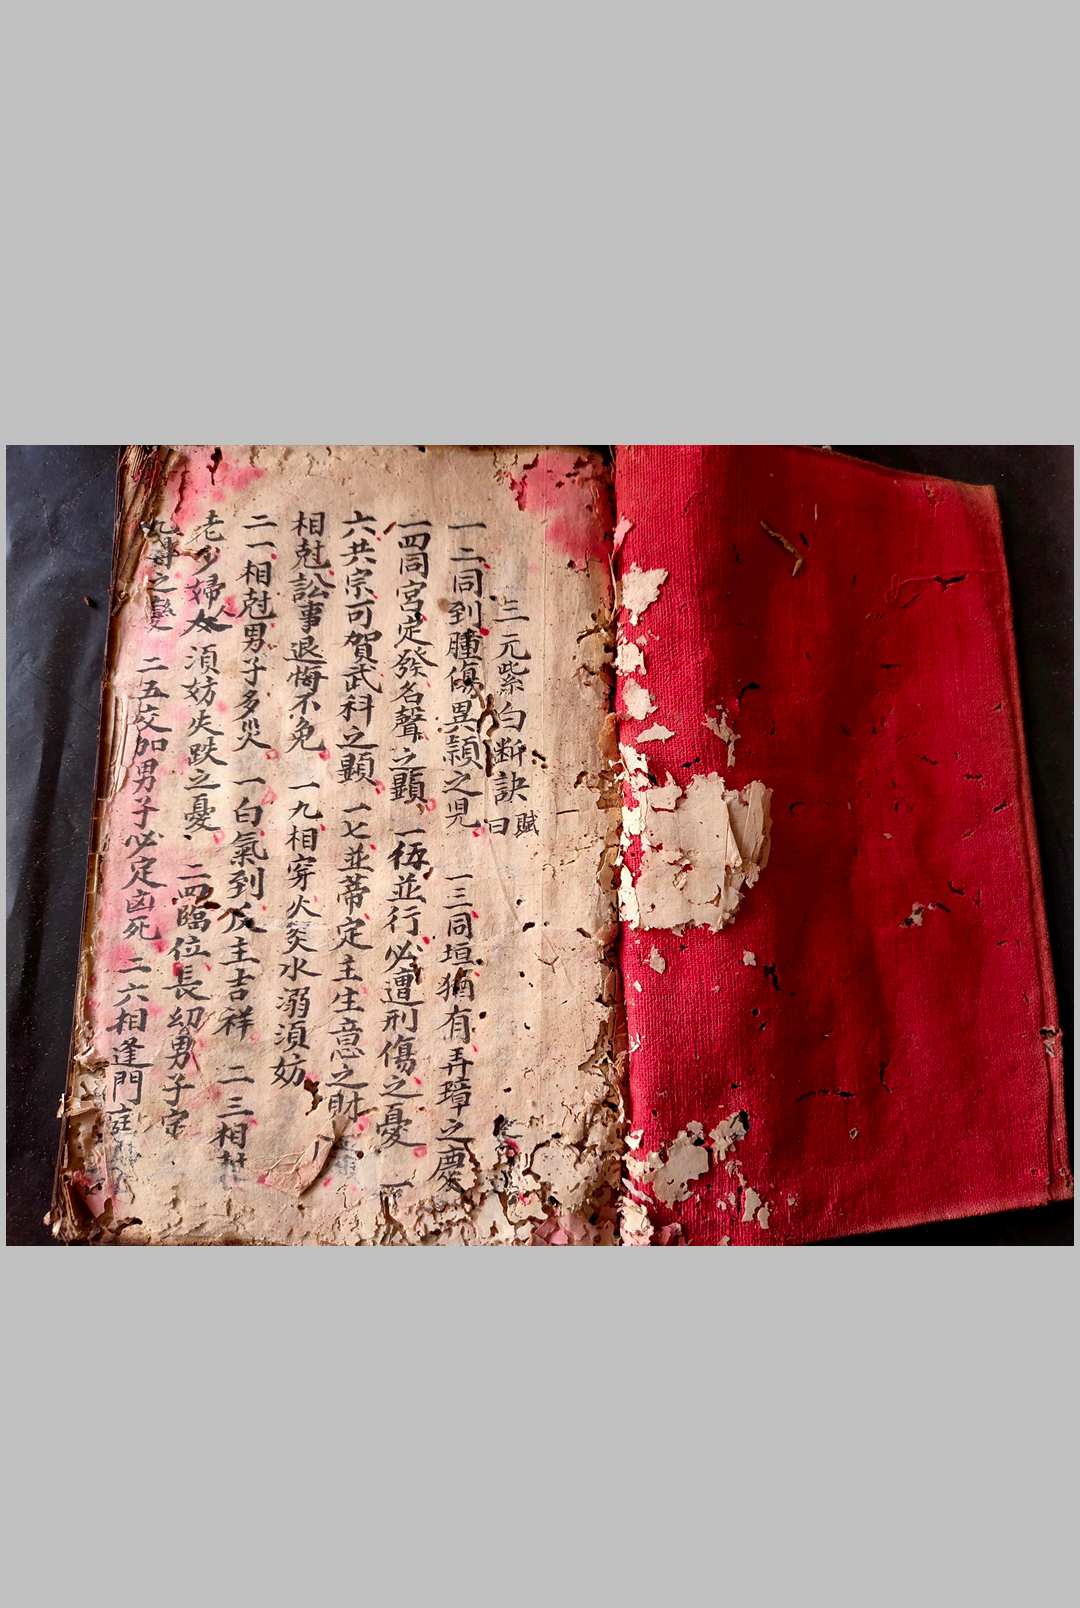 三元紫白斷訣賦曰
一二同到腫傷異穎之児 一三同垣猶有弄璋之慶
一四同宮定發名聲之顯 一五並行必遭刑傷之憂 一
六共宗可賀武科之顯 一七並蒂定主生意之財
相尅訟事退悔不免 一九相穿火災水溺須妨
二一相尅男子多災 一白氣到反主吉祥 二三相
老少婦人須妨失跌之憂 二四臨位長幼男子定
之變 二五交加男子必定凶死 二六相逢門庭